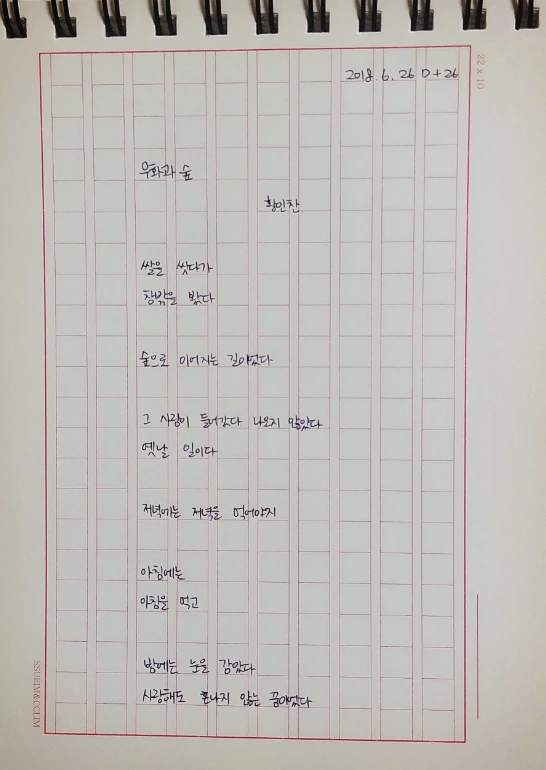 2018. 6. 26 D+26
22 x 10
우화과 숲
황인찬
쌀을 씻다가
창밖을 봤다
숲으로 이어지는 길이었다
그 사람이 들어갔다 나오지 않았다
옛날 일이다
저녁에는 저녁을 먹어야지
아침에는
아침을 먹고
밤에는 눈을 감았다
사랑해도 혼나지 않는 꿈이었다
SSUEIM&CCLIM